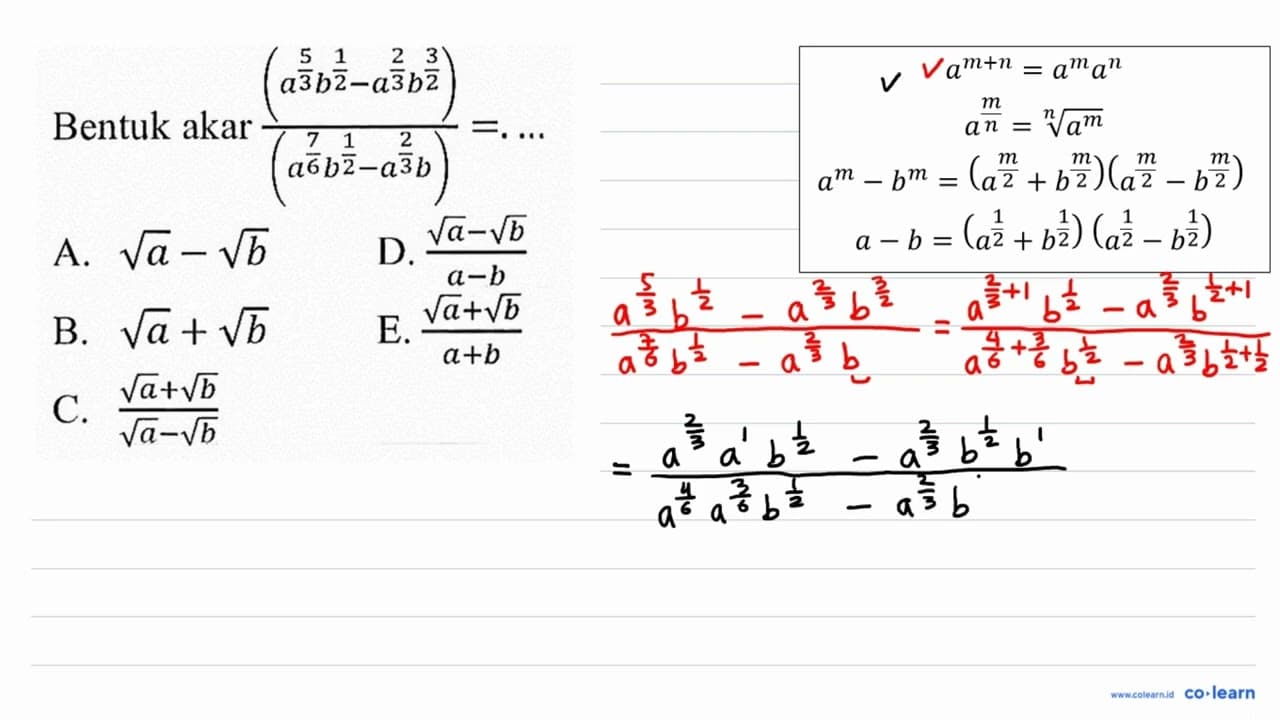 Bentuk akar \frac{\left(a^{\frac{5}{3}}b^{\frac{1}{2}}-a^{\frac{2}{3}}b^{\frac{3}{2}}\right)}{\left(a^{\frac{7}{6}}b^{\frac{1}{2}}-a^{\frac{2}{3}}b\right)} =. ...
A. √a − √b
B. √a + √b
C. \frac{√a+√b}{√a−√b}
D. \frac{√a−√b}{a−b}
E. \frac{√a+√b}{a+b}
✓ ✓ a^{m+n} = a^m a^n
a^{\frac{m}{n}} = \sqrt[n]{a^m}
a^m − b^m = (a^{\frac{m}{2}} + b^{\frac{m}{2}})(a^{\frac{m}{2}} − b^{\frac{m}{2}})
a − b = (a^{\frac{1}{2}} + b^{\frac{1}{2}}) (a^{\frac{1}{2}} − b^{\frac{1}{2}})
\frac{a^{\frac{5}{3}} b^{\frac{1}{2}} − a^{\frac{2}{3}} b^{\frac{3}{2}}}{a^{\frac{7}{6}} b^{\frac{1}{2}} − a^{\frac{2}{3}} b} = \frac{a^{\frac{2}{3}+1} b^{\frac{1}{2}} − a^{\frac{2}{3}} b^{\frac{1}{2}+1}}{a^{\frac{4}{6}+\frac{3}{6}} b^{\frac{1}{2}} − a^{\frac{2}{3}} b^{\frac{1}{2}+\frac{1}{2}}}
= \frac{a^{\frac{2}{3}} a^1 b^{\frac{1}{2}} − a^{\frac{2}{3}} b^{\frac{1}{2}} b^1}{a^{\frac{4}{6}} a^{\frac{3}{6}} b^{\frac{1}{2}} − a^{\frac{2}{3}} b}
www.colearn.id co·learn